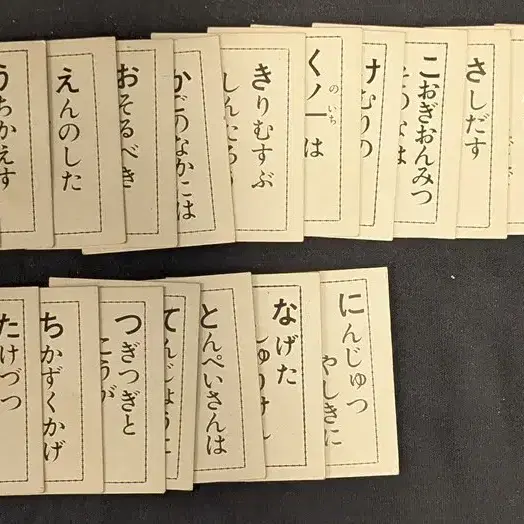 うちかえす
えんのした
おそるべき
かごのなかには
きりむすぶ
しんたろう
くノ一は
のいち
けむりの
こおぎおんみつ
そのなは
さしだす
たけづつ
ちかずくかげ
つぎつぎと
こうが
てんじょうに
とんぺいさんは
なげた
しゅりけん
にんじゅつ
やしきに